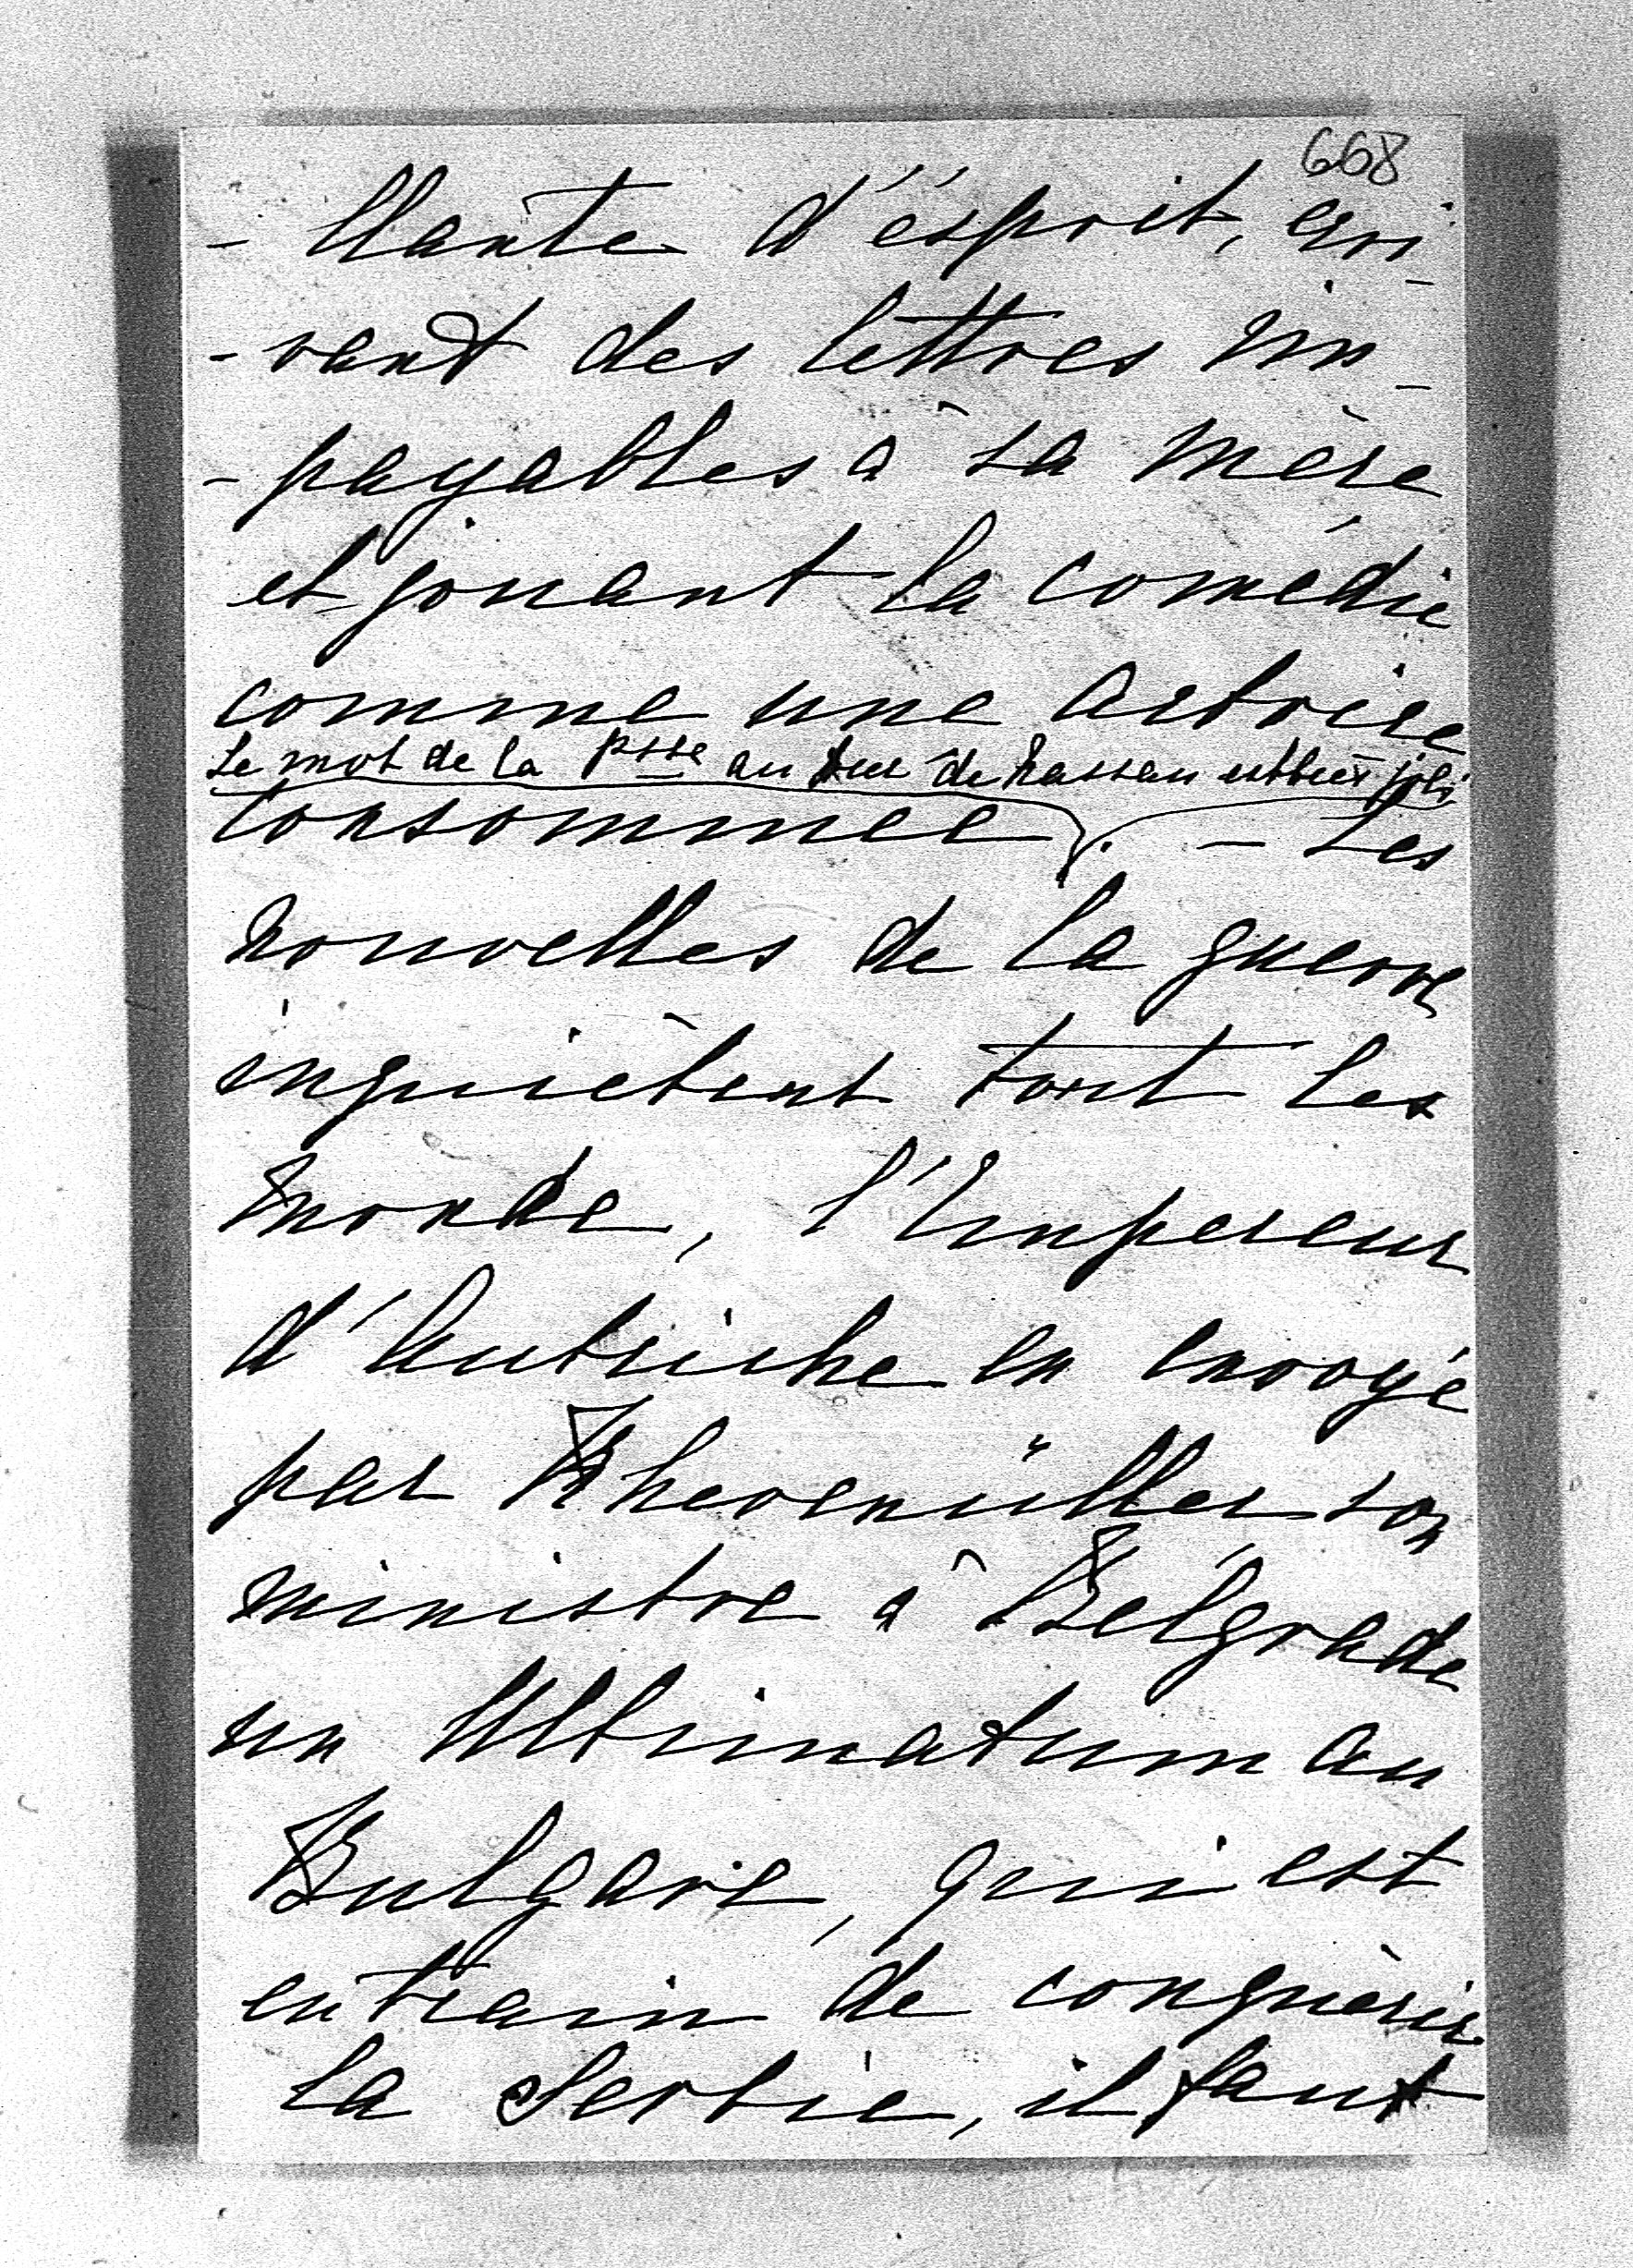 668
- llante d'ésprit, ecri-
- vant des lettres im-
- payables à sa mère
et jouant la comédie
comme une actrice
Le mot de la Psse au Duc de Nassau est très joli
consommee. - Les
nouvelles de la guerre
inquiètent tout les
monde, l'Empereur
d'Autriche en envoyé
par Khevenüller son
ministre à Bélgrade
un Ultimatum au
Bulgare, qui est
en train de conquèrir
la Serbie, il faut